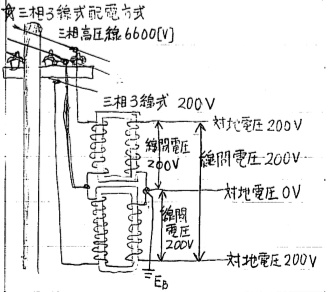 ☆三相3線式配電方式
三相高圧線6600[V]
三相3線式 200V
対地電圧200V
線間電圧
200V
線間電圧200V
対地電圧0V
線間
電圧
200V
対地電圧200V
EB